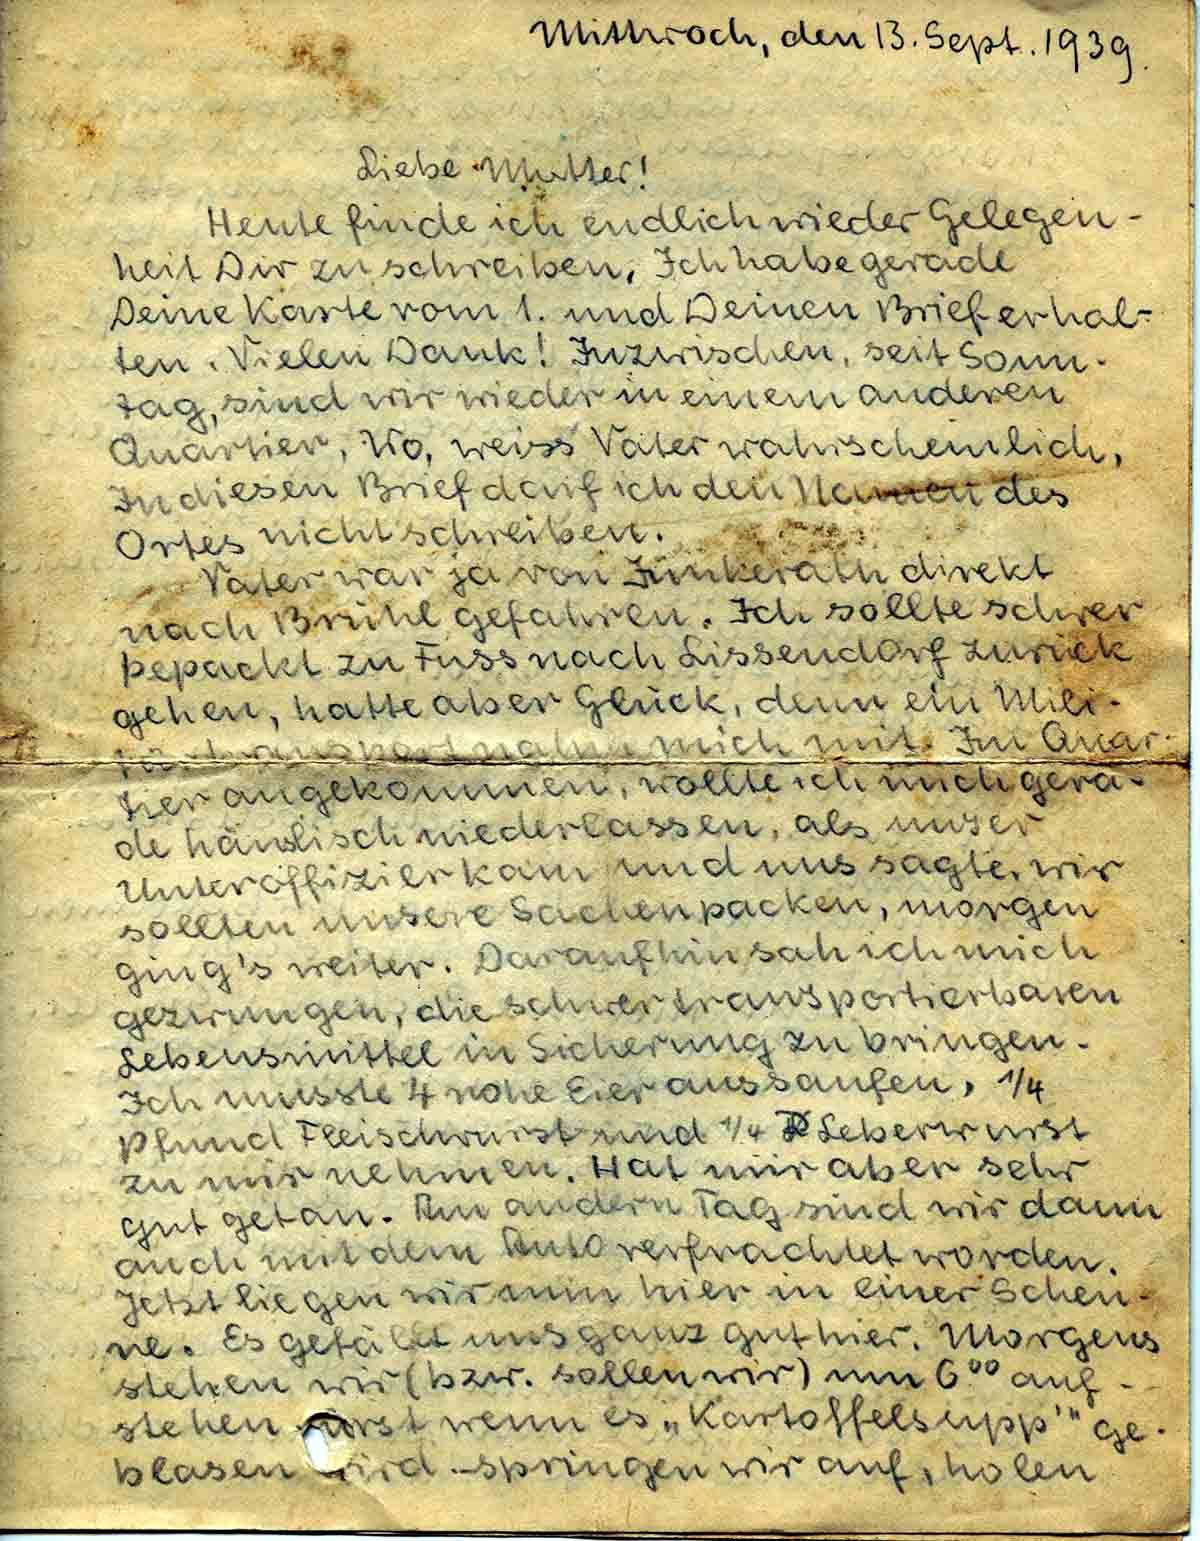 Mittwoch, den 13. Sept. 1939.
Liebe Mutter!
Heute finde ich endlich wieder Gelegen-
heit Dir zu schreiben. Ich habe gerade
Deine Karte vom 1. und Deinen Brief erhal-
ten. Vielen Dank! Inzwischen, seit Sonn-
tag, sind wir wieder in einem anderen
Quartier. Wo, weiss Vater wahrscheinlich,
In diesen Brief darf ich den Namen des
Ortes nicht schreiben.
Vater war ja von Jünkerath direkt
nach Brühl gefahren. Ich sollte schwer
bepackt zu Fuss nach Lissendorf zurück
gehen, hatte aber Glück, denn ein Mili-
tärtransport nahm mich mit. Im Quar-
tier angekommen, wollte ich mich gera-
de häuslich niederlassen, als unser
Unteroffizier kam und uns sagte, wir
sollten unsere Sachen packen, morgen
ging's weiter. Daraufhin sah ich mich
gezwungen, die schwer transportierbaren
Lebensmittel in Sicherung zu bringen.
Ich musste 4 rohe Eier aussaufen, 1/4
Pfund Fleischwurst und 1/4 Leberwurst
zu mir nehmen. Hat mir aber sehr
gut getan. Am andern Tag sind wir dann
auch mit dem Auto verfrachtet worden.
Jetzt liegen wir nun hier in einer Scheu-
ne. Es gefällt uns ganz gut hier. Morgens
stehen wir (bzw. sollen wir) um 6⁰⁰ auf-
stehen wenn es „Kartoffelsupp'" ge-
blasen wird springen wir auf, holen